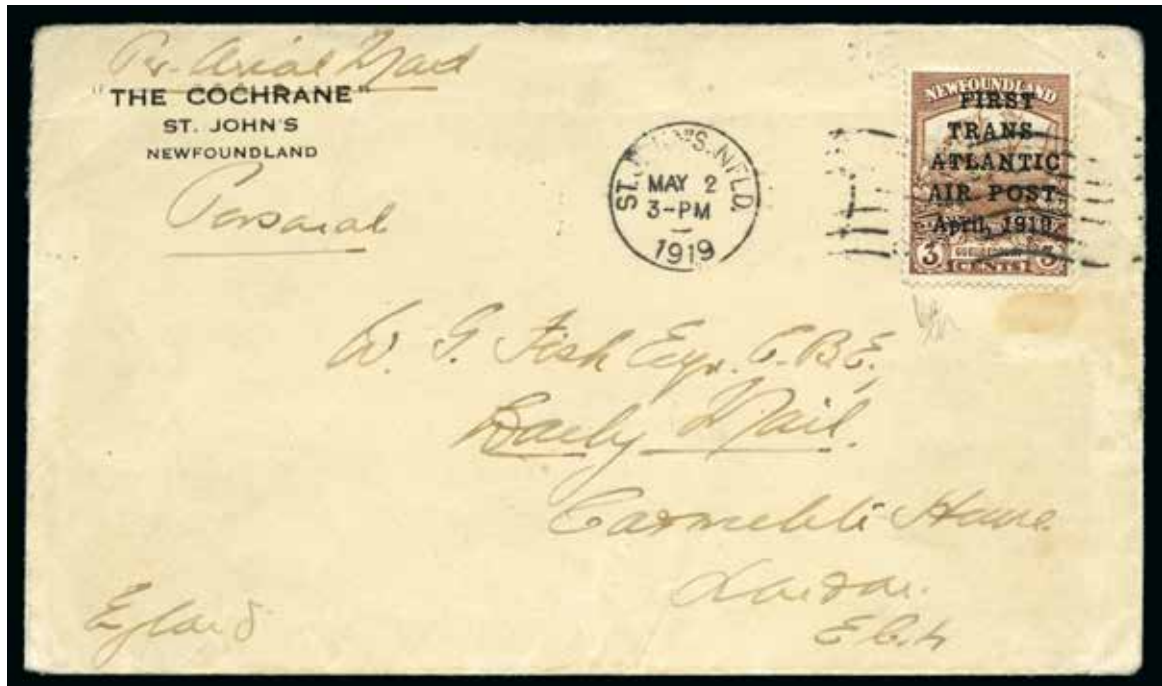 Per. Arial Mail
"THE COCHRANE"
ST. JOHN'S
NEWFOUNDLAND
Personal
ST. JOHN'S. NFLD.
MAY 2
3-PM
1919
NEWFOUNDLAND
FIRST
TRANS-
ATLANTIC
AIR POST.
April, 1919.
3 CENTS 3
W. G. Fish Esqr. C.B.E,
Daily Mail.
Carmelite House.
London.
E.C.4
England